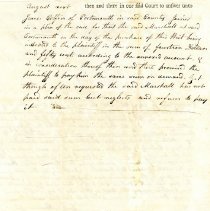 August next then and there in our said Court to answer unto
James
of Portsmouth in said County
in a plea of the case for that the said Marshall at said
Portsmouth on the day of the purchase of this Writ being
indebted to the plaintiff in the sum of fourteen Dollars
and fifty cents according to the account
in consideration thereof then and there promised the
plaintiff to pay him the same sum on demand. Yet
though often requested the said Marshall has not
paid said sum but neglects and refuses to pay
it